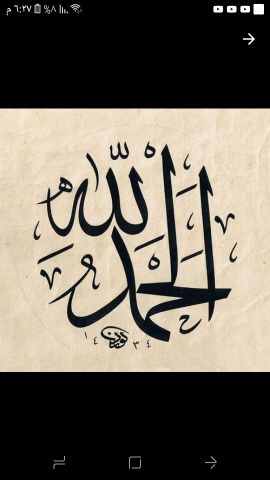 ٦:٢٧ م ٨%
الحمد لله
١٤٣٤